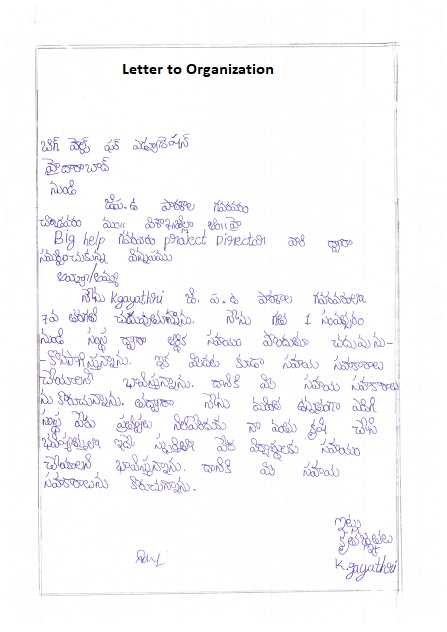 Letter to Organization
బిగ్ హెల్ప్ ఫర్ ఎడ్యుకేషన్
హైదరాబాద్
నుండి
జి.ప.ఉ పాఠశాల గవరవరం
చోడవరం మం॥ విశాఖజిల్లా ఆం॥ప్ర
Big help గవరవరం project Director వారి ద్వారా
సమర్పించుకున్న విన్నపము
అయ్యా/అమ్మా
నేను K.gayathri జి.ప.ఉ పాఠశాల గవరవరంలో
7వ తరగతి చదువుతున్నాను. నేను గత 1 సంవత్సరం
నుండి సంస్థ ద్వారా ఆర్థిక సహాయం పొందుతూ చదువును-
-కొనసాగిస్తున్నాను. ఇక మీదట కూడా సహాయ సహకారాలు
చేయాలని భావిస్తున్నాను. దానికి మీ సహాయ సహకారాల
ను కోరుచున్నాను. తద్వారా నేను మరింత ఉన్నతంగా ఎదిగి
సంస్థ పేరు ప్రతిష్టలు నిలిపేందుకు నా వంతు కృషి చేసి
భవిష్యత్తులో ఇదే స్ఫూర్తితో పేద విద్యార్థులకు సహాయం
చేయాలని భావిస్తున్నాను. దానికి మీ సహాయ
సహకారాలను కోరుచున్నాను.
ఇట్లు
కృతజ్ఞతలు
K.gayathri